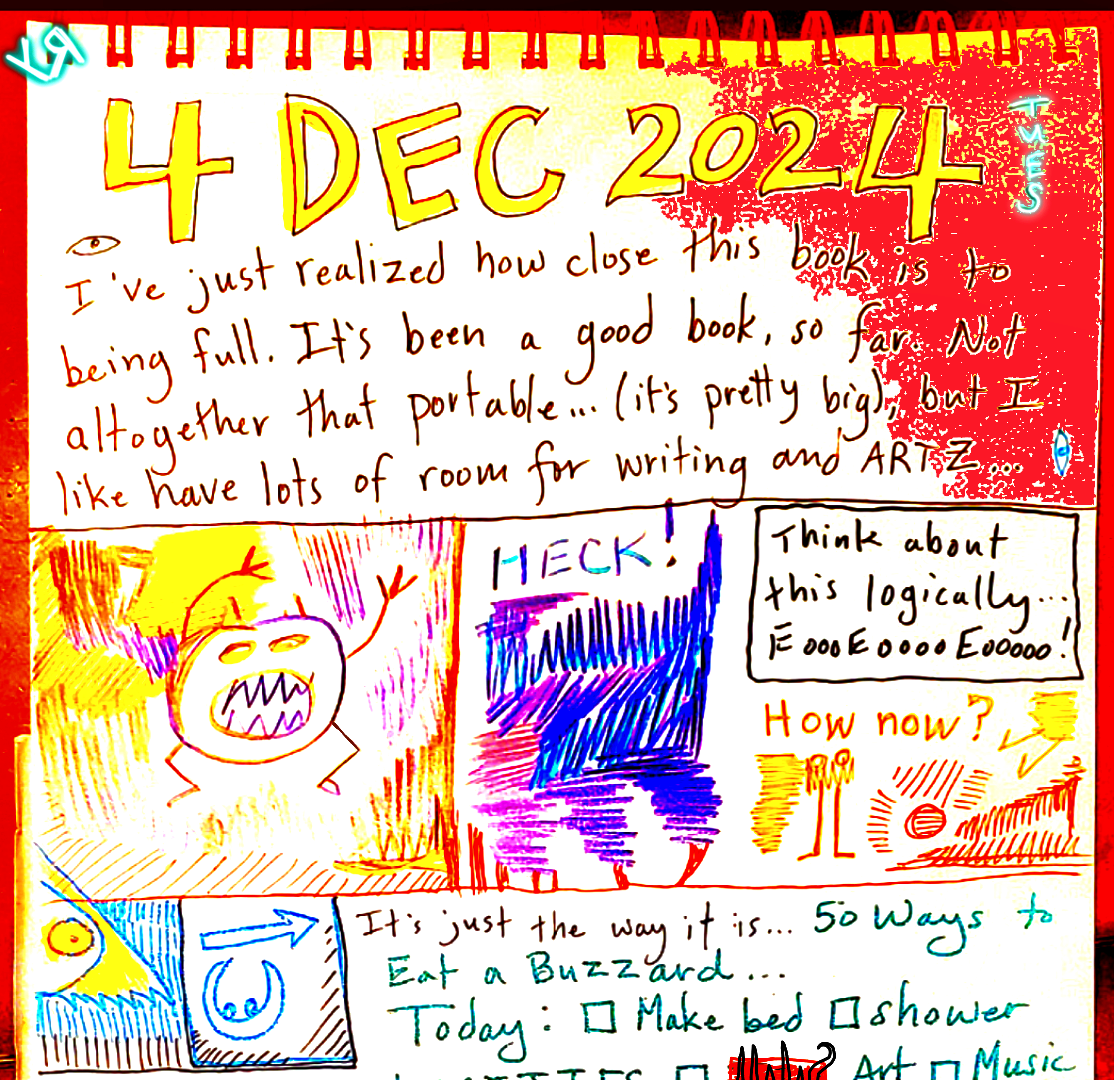 4 DEC 2024
TUES
I've just realized how close this book is to
being full. It's been a good book, so far. Not
altogether that portable... (it's pretty big), but I
like have lots of room for writing and ARTZ...
HECK!
Think about
this logically...
EoooEooooEooooo!
How now?
It's just the way it is... 50 Ways to
Eat a Buzzard...
Today: □ Make bed □ shower
□ Art □ Music